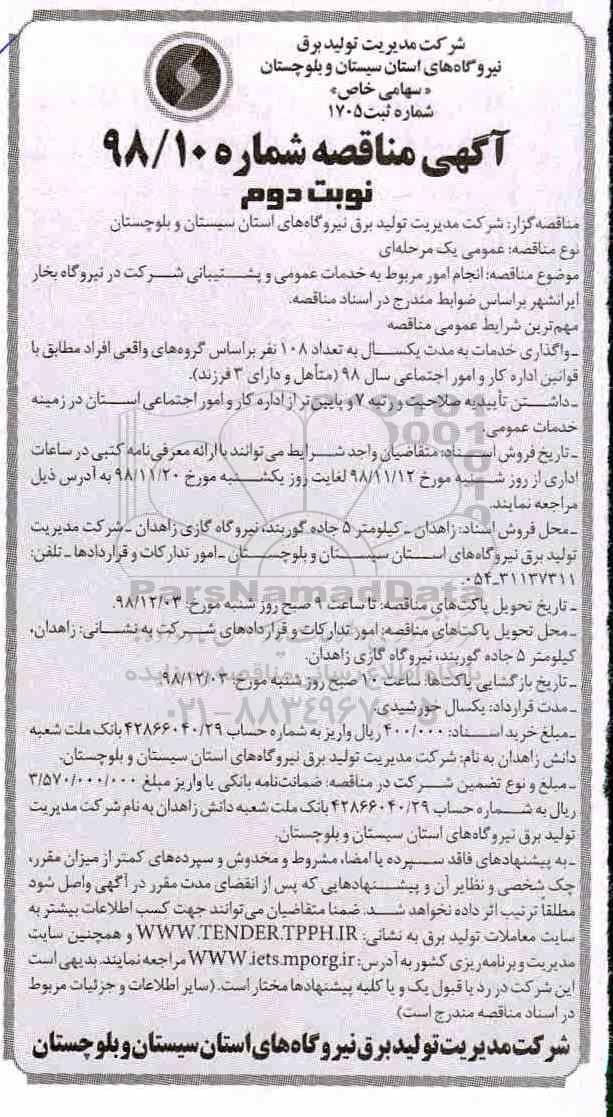 شرکت مدیریت تولید برق
نیروگاه‌های استان سیستان و بلوچستان
«سهامی خاص»
شماره ثبت ۱۷۰۵
آگهی مناقصه شماره ۹۸/۱۰
نوبت دوم
مناقصه‌گزار: شرکت مدیریت تولید برق نیروگاه‌های استان سیستان و بلوچستان
نوع مناقصه: عمومی یک مرحله‌ای
موضوع مناقصه: انجام امور مربوط به خدمات عمومی و پشتیبانی شرکت در نیروگاه بخار
ایرانشهر براساس ضوابط مندرج در اسناد مناقصه.
مهم‌ترین شرایط عمومی مناقصه
ـ واگذاری خدمات به مدت یکسال به تعداد ۱۰۸ نفر براساس گروه‌های واقعی افراد مطابق با
قوانین اداره کار و امور اجتماعی سال ۹۸ (متأهل و دارای ۳ فرزند).
ـ داشتن تأییدیه صلاحیت و رتبه ۷ و پایین‌تر از اداره کار و امور اجتماعی استان در زمینه
خدمات عمومی.
ـ تاریخ فروش اسناد: متقاضیان واجد شرایط می‌توانند با ارائه معرفی‌نامه کتبی در ساعات
اداری از روز شنبه مورخ ۹۸/۱۱/۱۲ لغایت روز یکشنبه مورخ ۹۸/۱۱/۲۰ به آدرس ذیل
مراجعه نمایند.
ـ محل فروش اسناد: زاهدان ـ کیلومتر ۵ جاده گوربند، نیروگاه گازی زاهدان ـ شرکت مدیریت
تولید برق نیروگاه‌های استان سیستان و بلوچستان ـ امور تدارکات و قراردادها ـ تلفن:
۰۵۴-۳۱۱۳۷۳۱۱.
ParsNamadData
ـ تاریخ تحویل پاکت‌های مناقصه: تا ساعت ۹ صبح روز شنبه مورخ: ۹۸/۱۲/۰۳.
ـ محل تحویل پاکت‌های مناقصه: امور تدارکات و قراردادهای شرکت به نشانی: زاهدان،
کیلومتر ۵ جاده گوربند، نیروگاه گازی زاهدان.
ـ تاریخ بازگشایی پاکت‌ها: ساعت ۱۰ صبح روز شنبه مورخ: ۹۸/۱۲/۰۳.
ـ مدت قرارداد: یکسال خورشیدی.
۰۲۱-۸۸۳۴۹۶۷۰-۵
ـ مبلغ خرید اسناد: ۴۰۰/۰۰۰ ریال واریز به شماره حساب ۴۲۸۶۶۰۴۰/۲۹ بانک ملت شعبه
دانش زاهدان به نام: شرکت مدیریت تولید برق نیروگاه‌های استان سیستان و بلوچستان.
ـ مبلغ و نوع تضمین شرکت در مناقصه: ضمانت‌نامه بانکی یا واریز مبلغ ۳/۵۷۰/۰۰۰/۰۰۰
ریال به شماره حساب ۴۲۸۶۶۰۴۰/۲۹ بانک ملت شعبه دانش زاهدان به نام شرکت مدیریت
تولید برق نیروگاه‌های استان سیستان و بلوچستان.
ـ به پیشنهادهای فاقد سپرده یا امضا، مشروط و مخدوش و سپرده‌های کمتر از میزان مقرر،
چک شخصی و نظایر آن و پیشنهادهایی که پس از انقضای مدت مقرر در آگهی واصل شود
مطلقاً ترتیب اثر داده نخواهد شد. ضمنا متقاضیان می‌توانند جهت کسب اطلاعات بیشتر به
سایت معاملات تولید برق به نشانی: WWW.TENDER.TPPH.IR و همچنین سایت
مدیریت و برنامه‌ریزی کشور به آدرس: WWW.iets.mporg.ir مراجعه نمایند. بدیهی است
این شرکت در رد یا قبول یک و یا کلیه پیشنهادها مختار است. (سایر اطلاعات و جزئیات مربوط
در اسناد مناقصه مندرج است)
شرکت مدیریت تولید برق نیروگاه‌های استان سیستان و بلوچستان